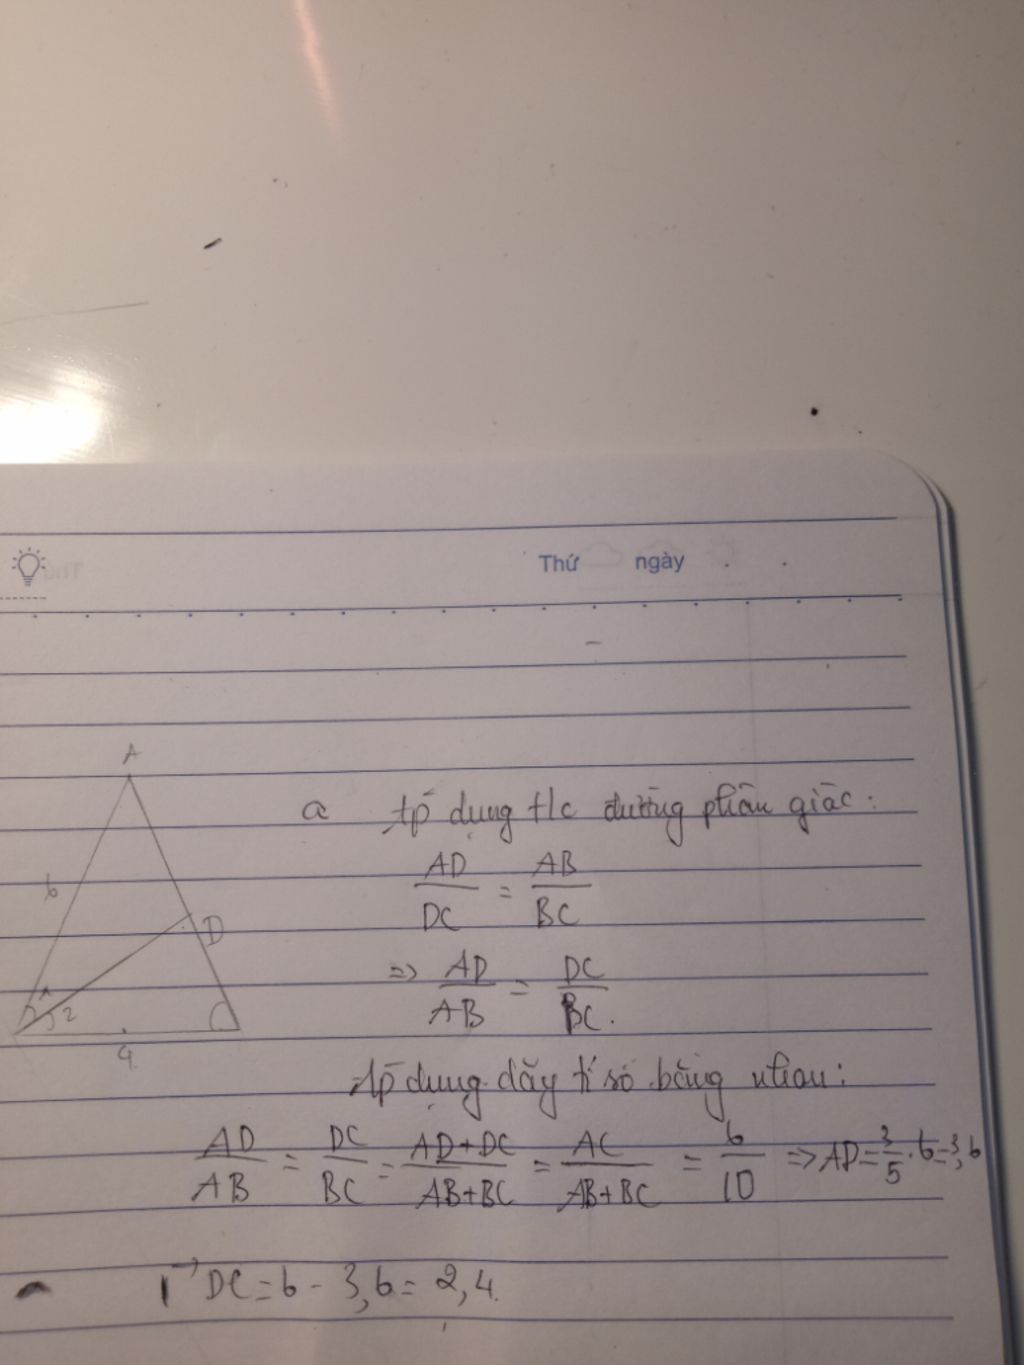 Thứ ngày
A
a áp dụng t/c đường phân giác:
AD/DC = AB/BC
6
D
=> AD/AB = DC/BC.
2
4
Áp dụng dãy tỉ số bằng nhau:
AD/AB = DC/BC = AD+DC/AB+BC = AC/AB+BC = 6/10 => AD=3/5.6=3,6
DC=6-3,6=2,4.